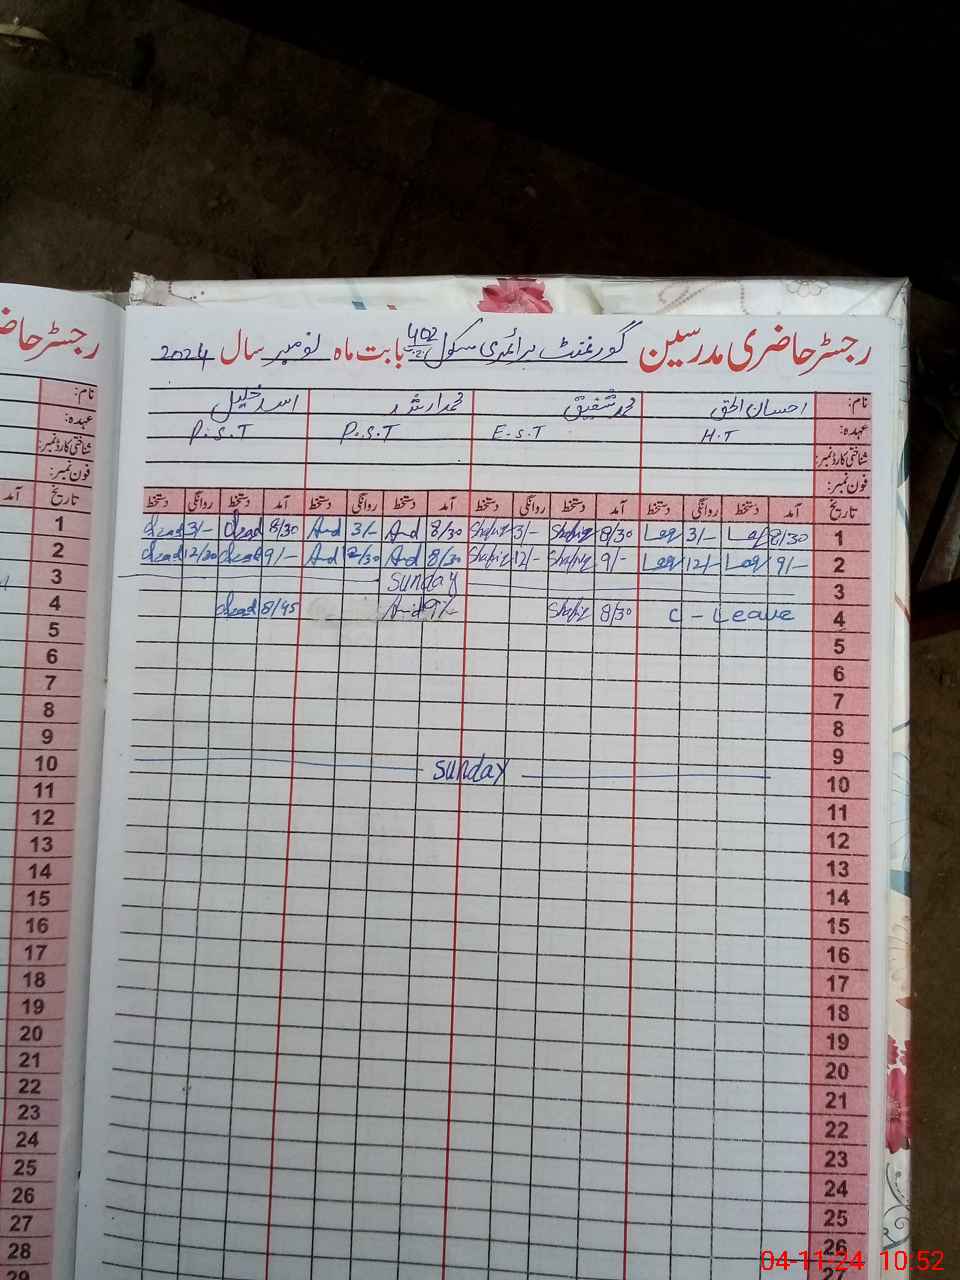 رجسٹر حاضری مدرسین گورنمنٹ پرائمری سکول 402 بابت ماہ نومبر سال 2024
رجسٹر حاضر
نام: احسان الحق محمد شفیق محمد ارشد اسد خلیل
عہدہ: H.T E.S.T P.S.T P.S.T
شناختی کارڈ نمبر:
فون نمبر:
تاریخ آمد دستخط روانگی دستخط آمد دستخط روانگی دستخط آمد دستخط روانگی دستخط آمد دستخط روانگی دستخط
1 8/30 3/- 8/30 Shafiq 3/- Shafiq 8/30 3/- 8/30 Asad 3/- Asad
2 9/- 12/- 9/- Shafiq 12/- Shafiq 8/30 12/30 9/- Asad 12/30 Asad
3 Sunday
4 C - Leave 8/30 Shafiq 9/- 8/45 Asad
5
6
7
8
9
Sunday
10
11
12
13
14
15
16
17
18
19
20
21
22
23
24
25
26
27
نام:
عہدہ:
شناختی کارڈ نمبر:
فون نمبر:
تاریخ آمد
1
2
3
4
5
6
7
8
9
10
11
12
13
14
15
16
17
18
19
20
21
22
23
24
25
26
27
28
29
04-11-24 10:52